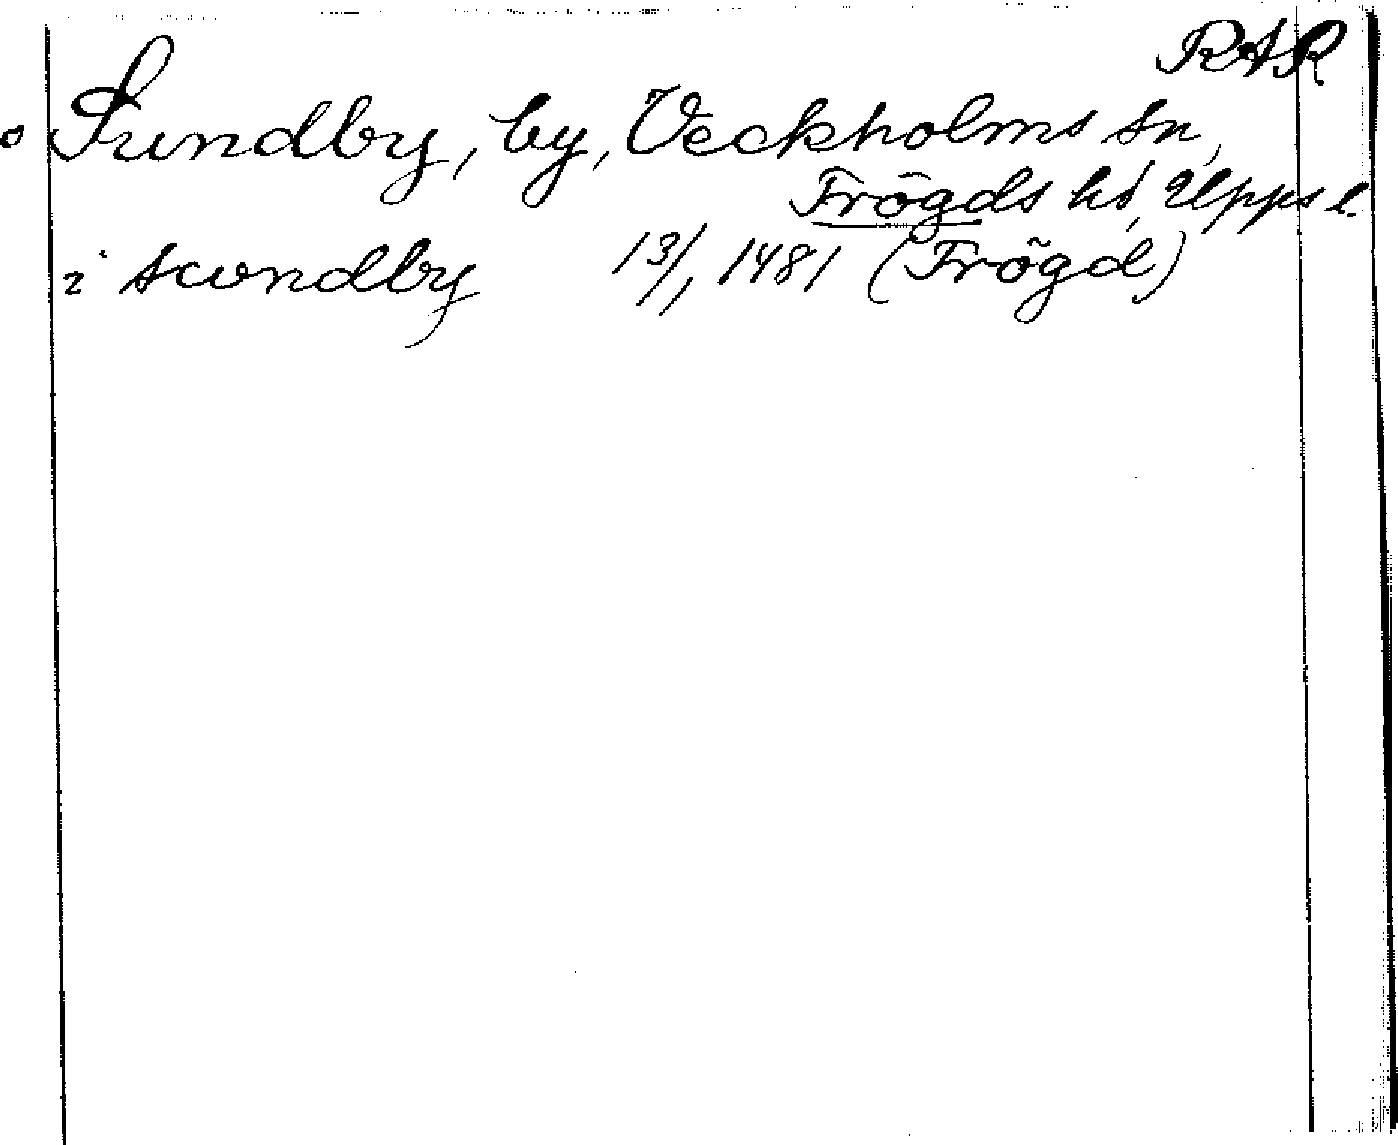 RAP
Sundby, by, Veckholms sn,
Frögds hd, Upps l.
i swndby 13/1 1481 (Frögd)